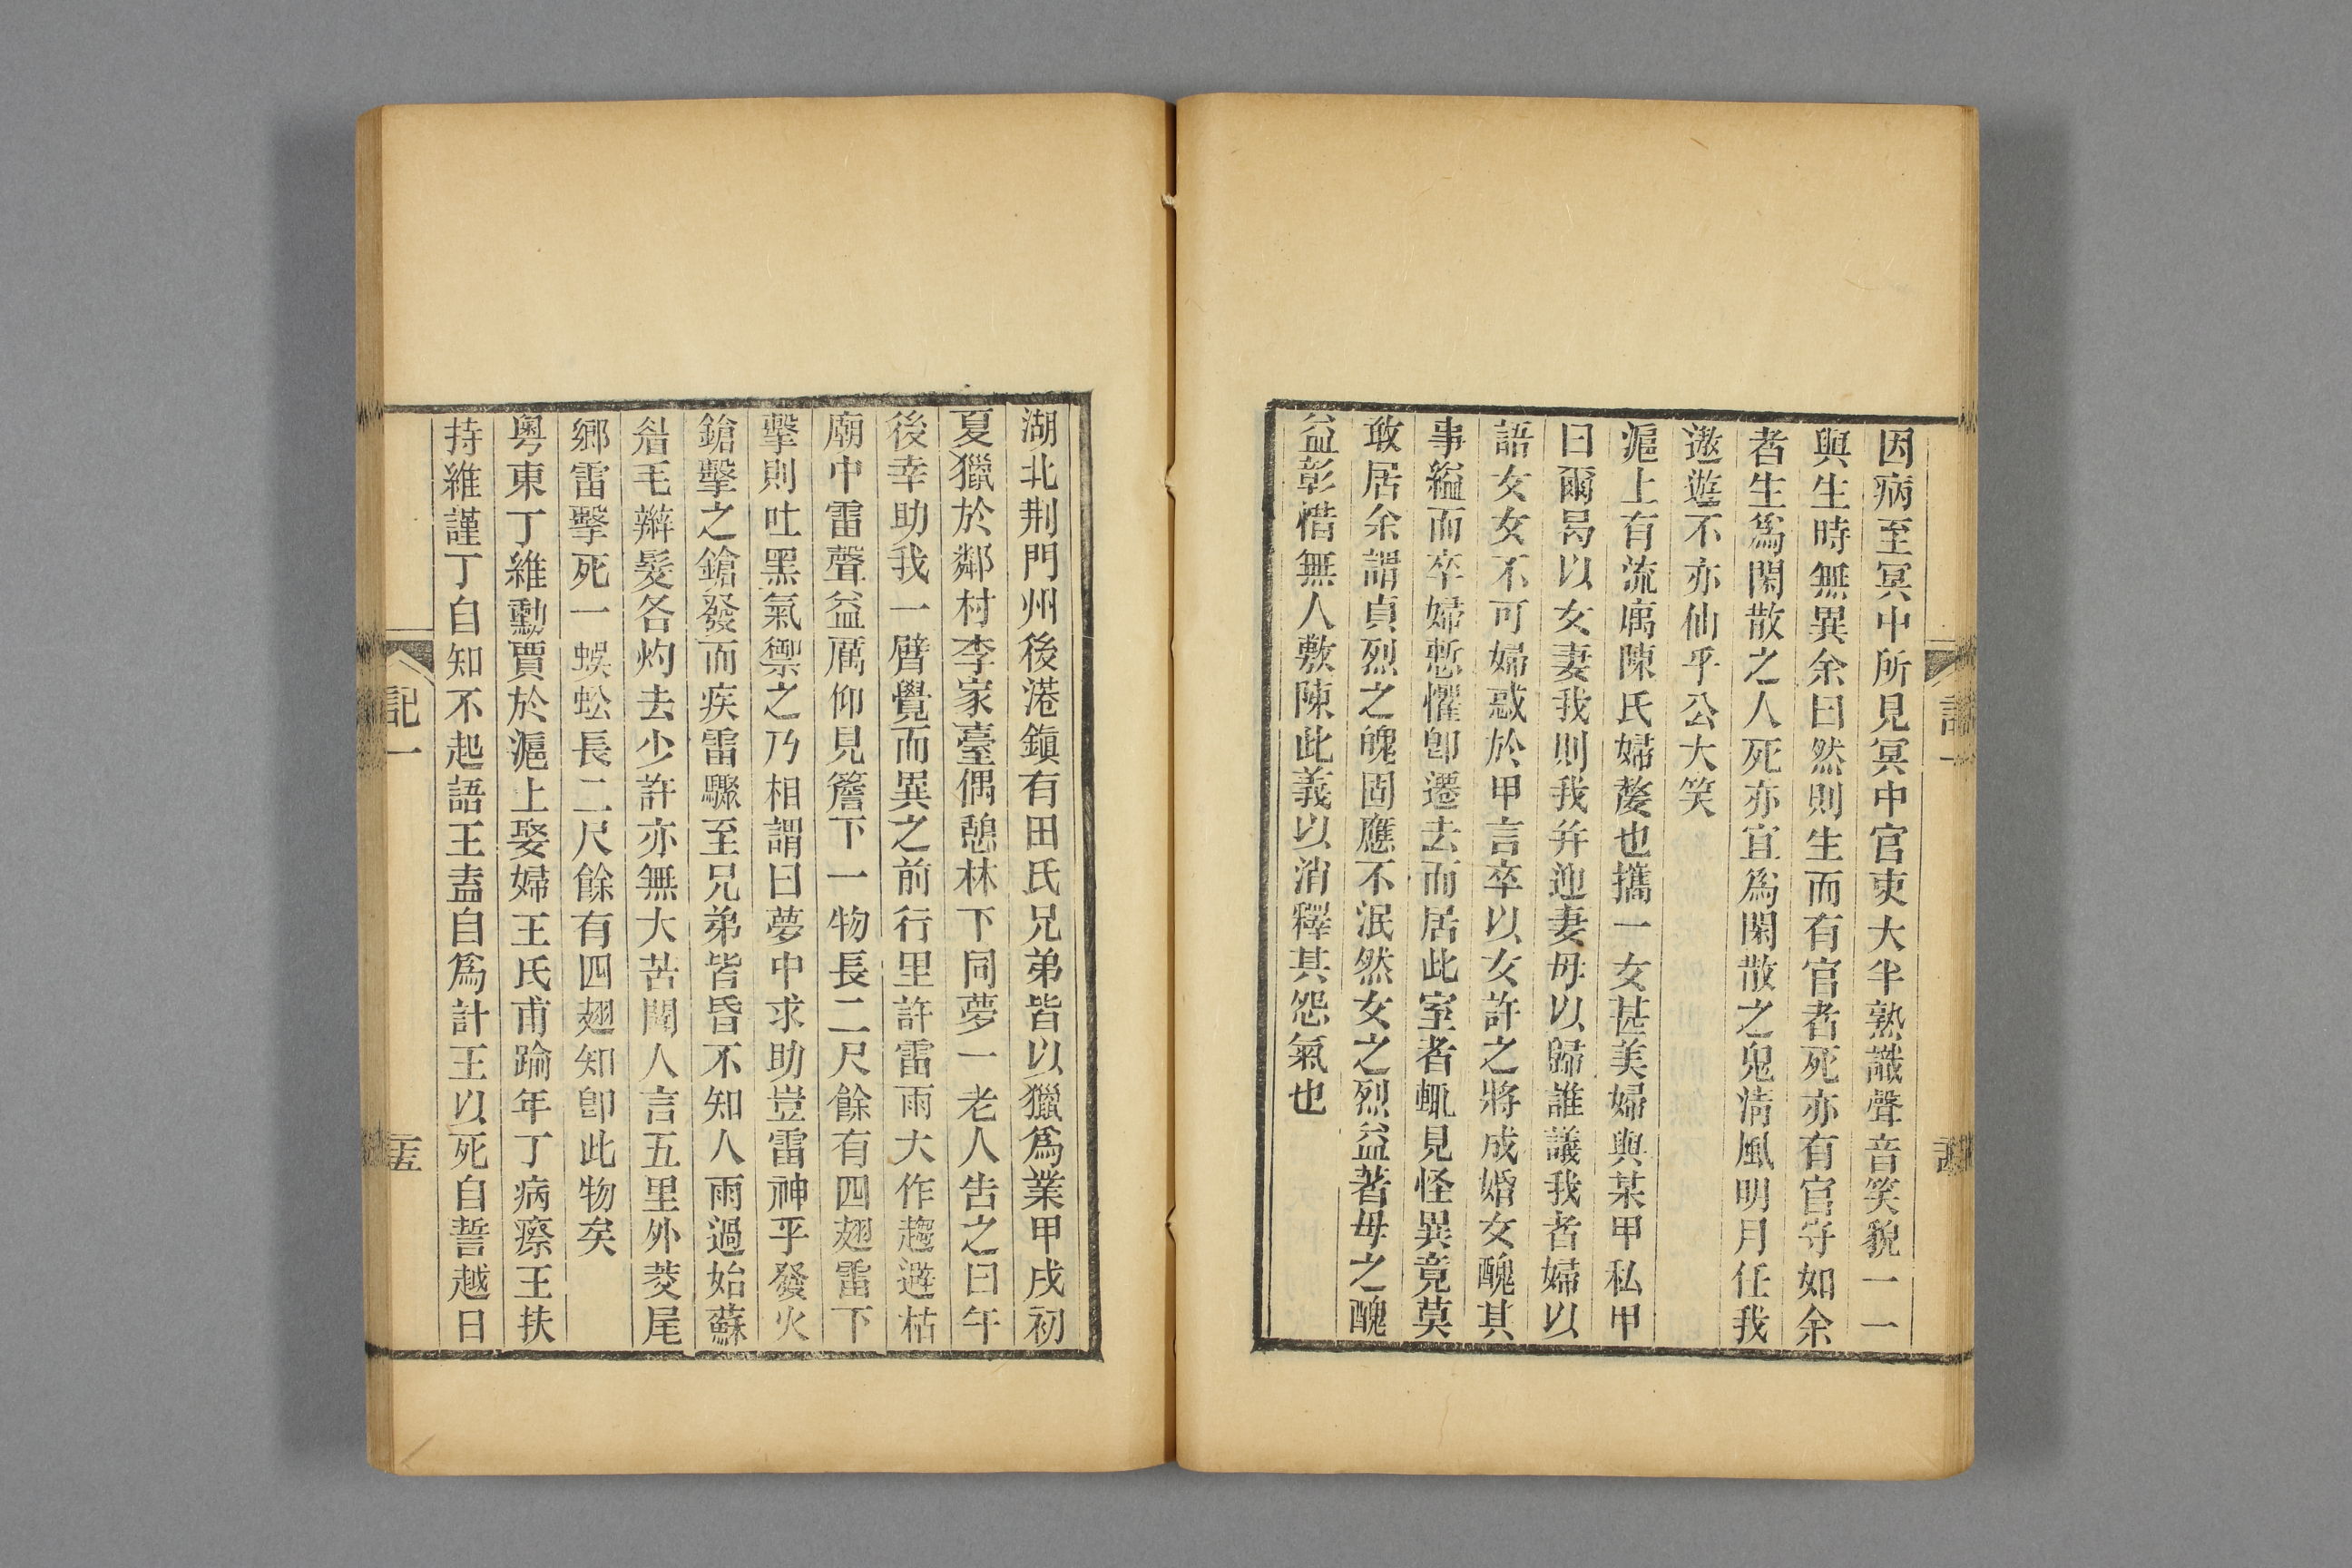 因病至冥中所見冥中官吏大半熟識聲音笑貌一一
與生時無異余曰然則生而有官者死亦有官守如余
者生爲閑散之人死亦宜爲閑散之鬼淸風明月任我
遨遊不亦仙乎公大笑
滬上有流寓陳氏婦嫠也攜一女甚美婦與某甲私甲
曰爾曷以女妻我則我幷迎妻母以歸誰議我者婦以
語女女不可婦惑於甲言卒以女許之將成婚女醜其
事縊而卒婦慙懼卽遷去而居此室者輒見怪異竟莫
敢居余謂貞烈之魄固應不泯然女之烈益著母之醜
益彰惜無人敷陳此義以消釋其怨氣也
湖北荆門州後港鎭有田氏兄弟皆以獵爲業甲戌初
夏獵於鄰村李家臺偶憩林下同夢一老人告之曰午
後幸助我一臂覺而異之前行里許雷雨大作趨避枯
廟中雷聲益厲仰見簷下一物長二尺餘有四翅雷下
擊則吐黑氣禦之乃相謂曰夢中求助豈雷神乎發火
鎗擊之鎗發而疾雷驟至兄弟皆昏不知人雨過始蘇
眉毛辮髮各灼去少許亦無大苦聞人言五里外菱尾
鄉雷擊死一蜈蚣長二尺餘有四翅知卽此物矣
粵東丁維勳賈於滬上娶婦王氏甫踰年丁病瘵王扶
持維謹丁自知不起語王盍自爲計王以死自誓越日
記一